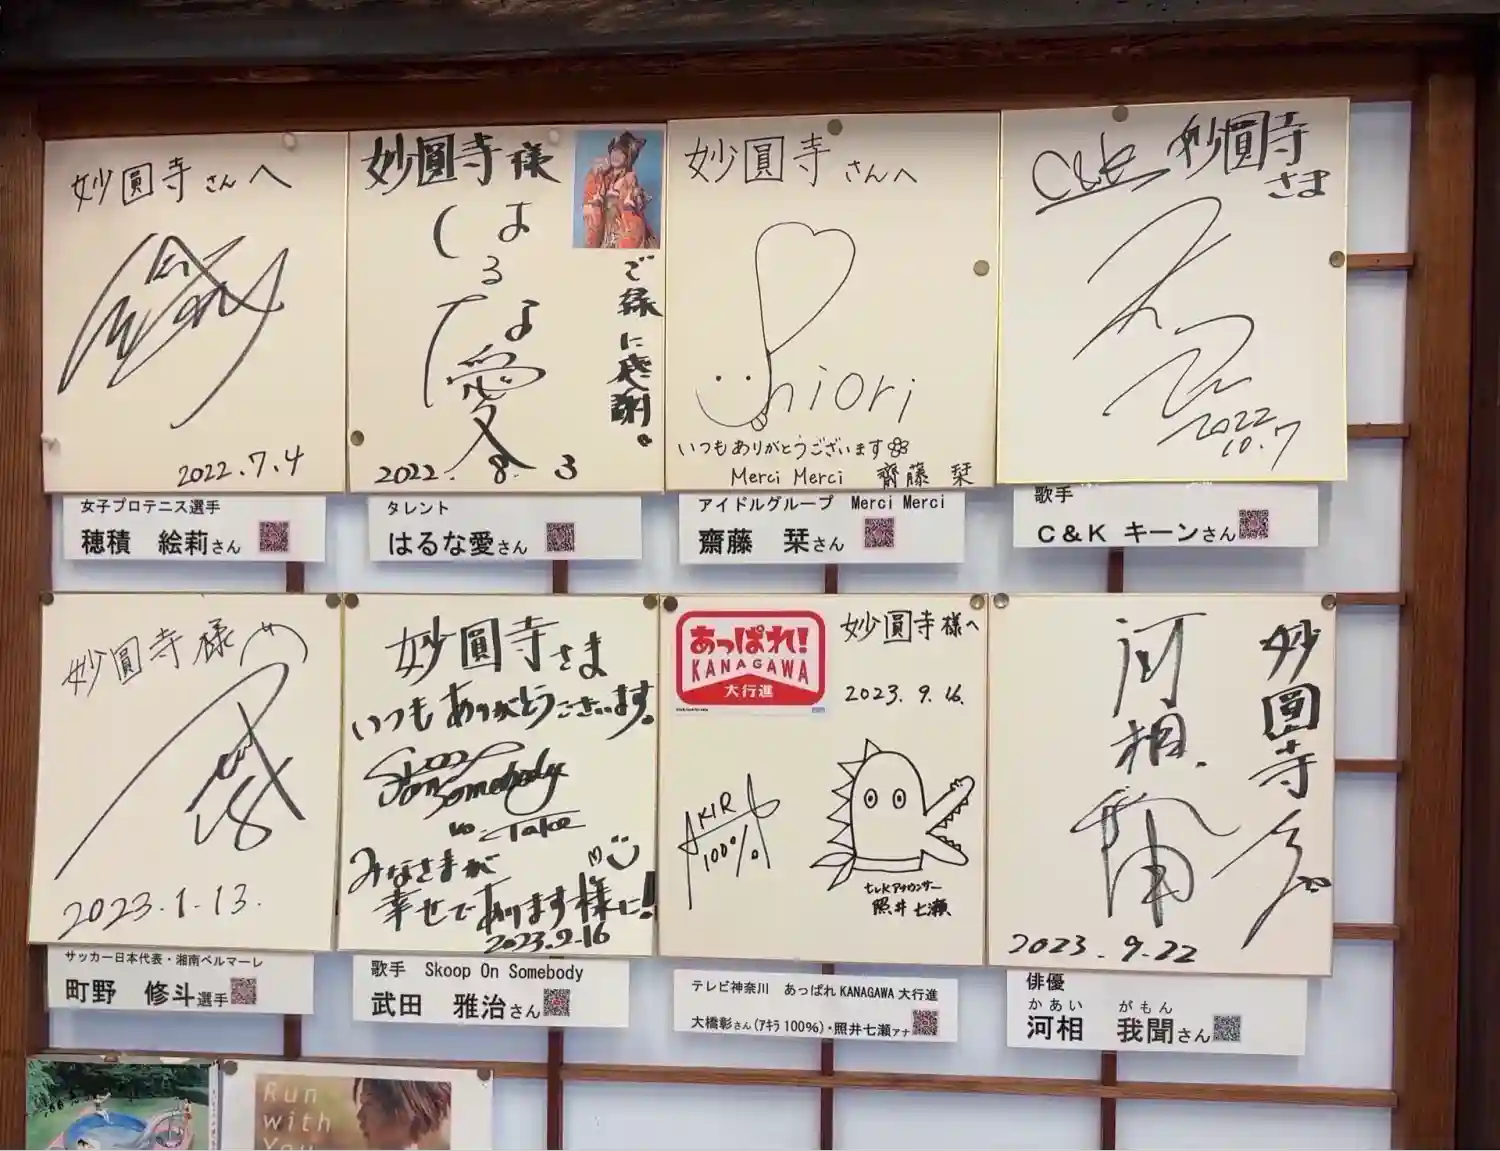 妙圓寺さんへ
2022.7.4
女子プロテニス選手
穂積 絵莉さん
妙圓寺様
はるな愛
ご縁に感謝。
2022. 8. 3
タレント
はるな愛さん
妙圓寺さんへ
Shiori
いつもありがとうございます
Merci Merci 齋藤 栞
アイドルグループ Merci Merci
齋藤 栞さん
C&K 妙圓寺さま
2022
10.7
歌手
C&K キーンさん
妙圓寺様へ
18
2023.1.13.
サッカー日本代表・湘南ベルマーレ
町野 修斗選手
妙圓寺さま
いつもありがとうございます。
Skoop
On Somebody
Take
みなさまが
幸せであります様に!
2023.2.16
歌手 Skoop On Somebody
武田 雅治さん
あっぱれ!
KANAGAWA
大行進
妙圓寺様へ
2023.9.16.
AKIRA
100%
tvkアナウンサー
照井七瀬
テレビ神奈川 あっぱれKANAGAWA大行進
大橋彰さん(アキラ100%)・照井七瀬アナ
妙圓寺さん
河相
2023.9.22
俳優
かあい がもん
河相 我聞さん
Run
with
You